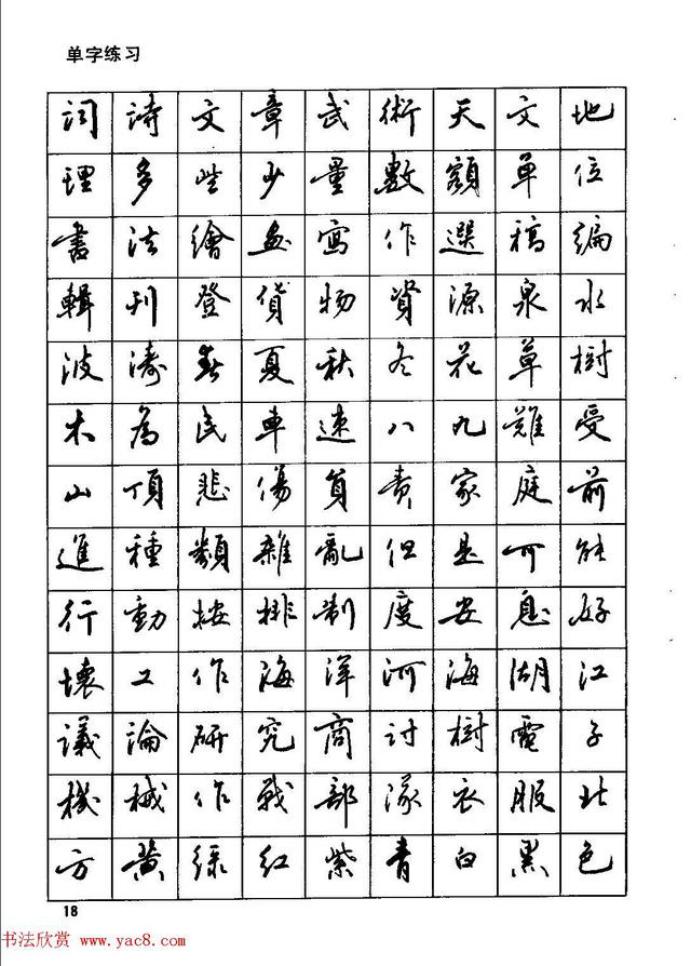 单字练习
詞詩文章武術天文地
理多些少量數額單位
書法繪画寫作選稿編
輯刊登貨物資源泉水
波濤春夏秋冬花草樹
木為民車速八九難受
山頂悲傷負责家庭前
進種類雜亂但是可能
行動按排制度安息好
壞工作海洋河海湖江
議論研究商討樹電子
機械作戰部隊衣服北
方黄绿红紫青白黑色
18
书法欣赏 www.yac8.com